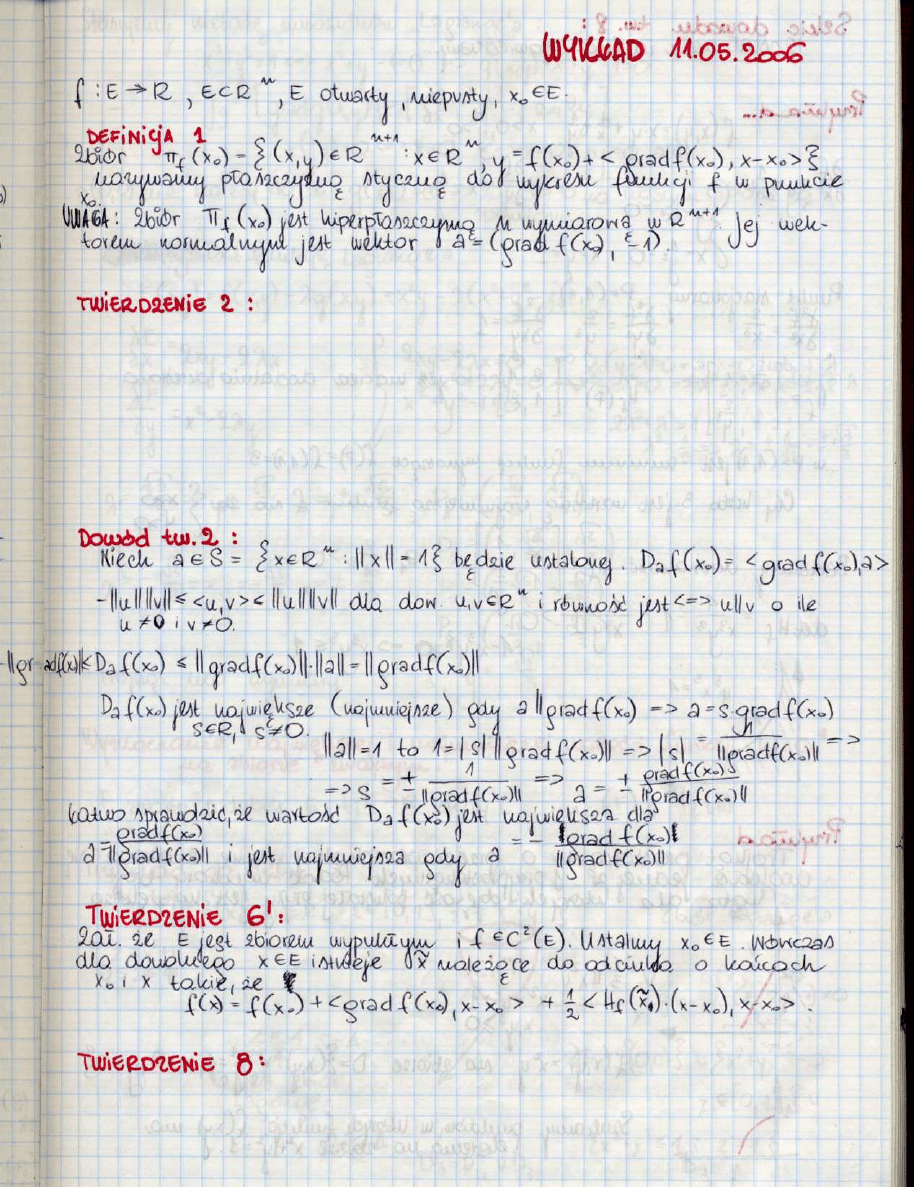 WYKŁAD 11.05.2006
f : E → R , E ⊂ Rⁿ , E otwarty , niepusty, x₀ ∈ E.
DEFINICJA 1
Zbiór π_f(x₀) = {(x,y) ∈ Rⁿ⁺¹ : x ∈ Rⁿ, y = f(x₀) + < gradf(x₀), x-x₀>}
nazywamy płaszczyzną styczną do wykresu funkcji f w punkcie
x₀.
UWAGA: Zbiór π_f(x₀) jest hiperpłaszczyzną n wymiarową w Rⁿ⁺¹. Jej wek-
torem normalnym jest wektor a = (grad f(x₀), -1)
TWIERDZENIE 2 :
Dowód tw. 2 :
Niech a ∈ S = {x ∈ Rⁿ : ||x|| = 1} będzie ustalone. Dₐf(x₀) = <gradf(x₀), a>
-||u|| ||v|| ≤ <u,v> ≤ ||u|| ||v|| dla dow. u,v ∈ Rⁿ i równość jest <=> u||v o ile
u ≠ 0 i v ≠ 0.
-||gradf(x₀)|| ≤ Dₐf(x₀) ≤ ||gradf(x₀)||·||a|| = ||gradf(x₀)||
Dₐf(x₀) jest największe (najmniejsze) gdy a || gradf(x₀) => a = s·gradf(x₀)
s ∈ R, s ≠ 0.
||a|| = 1 to 1 = |s| ||gradf(x₀)|| => |s| = 1/||gradf(x₀)|| =>
=> s = ± 1/||gradf(x₀)|| => a = ± gradf(x₀)/||gradf(x₀)||
Łatwo sprawdzić, że wartość Dₐf(x₀) jest największa dla
a = gradf(x₀)/||gradf(x₀)|| i jest najmniejsza gdy a = - grad f(x₀)/||gradf(x₀)||
TWIERDZENIE 6' :
Zał. że E jest zbiorem wypukłym i f ∈ C²(E). Ustalmy x₀ ∈ E. Wówczas
dla dowolnego x ∈ E istnieje x̃ należące do odcinka o końcach
x₀ i x takie, że
f(x) = f(x₀) + <grad f(x₀), x-x₀> + ½ <H_f(x̃)·(x-x₀), x-x₀>.
TWIERDZENIE 8 :